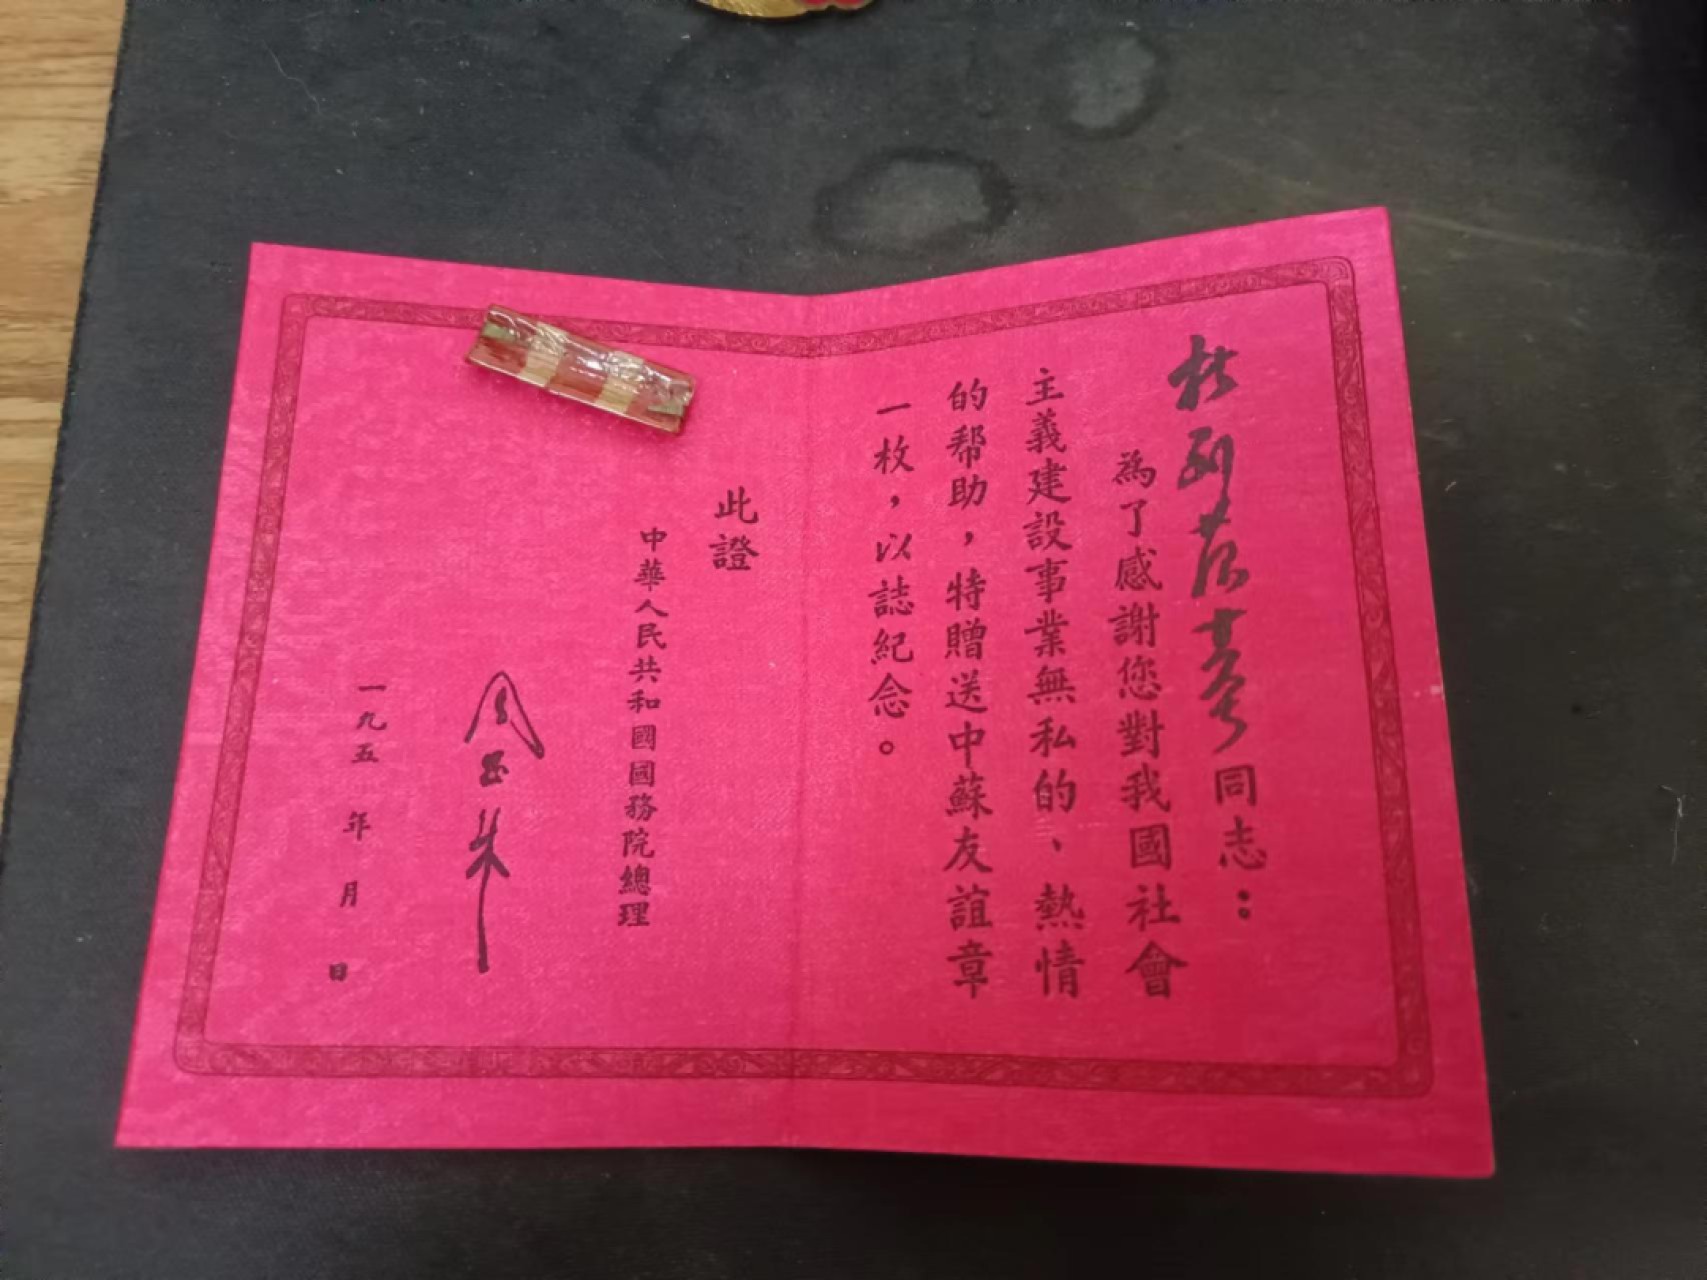 同志：
為了感謝您對我國社會
主義建設事業無私的、熱情
的帮助，特贈送中蘇友誼章
一枚，以誌紀念。
此證
中華人民共和國國務院總理
周恩来
一九五 年 月 日